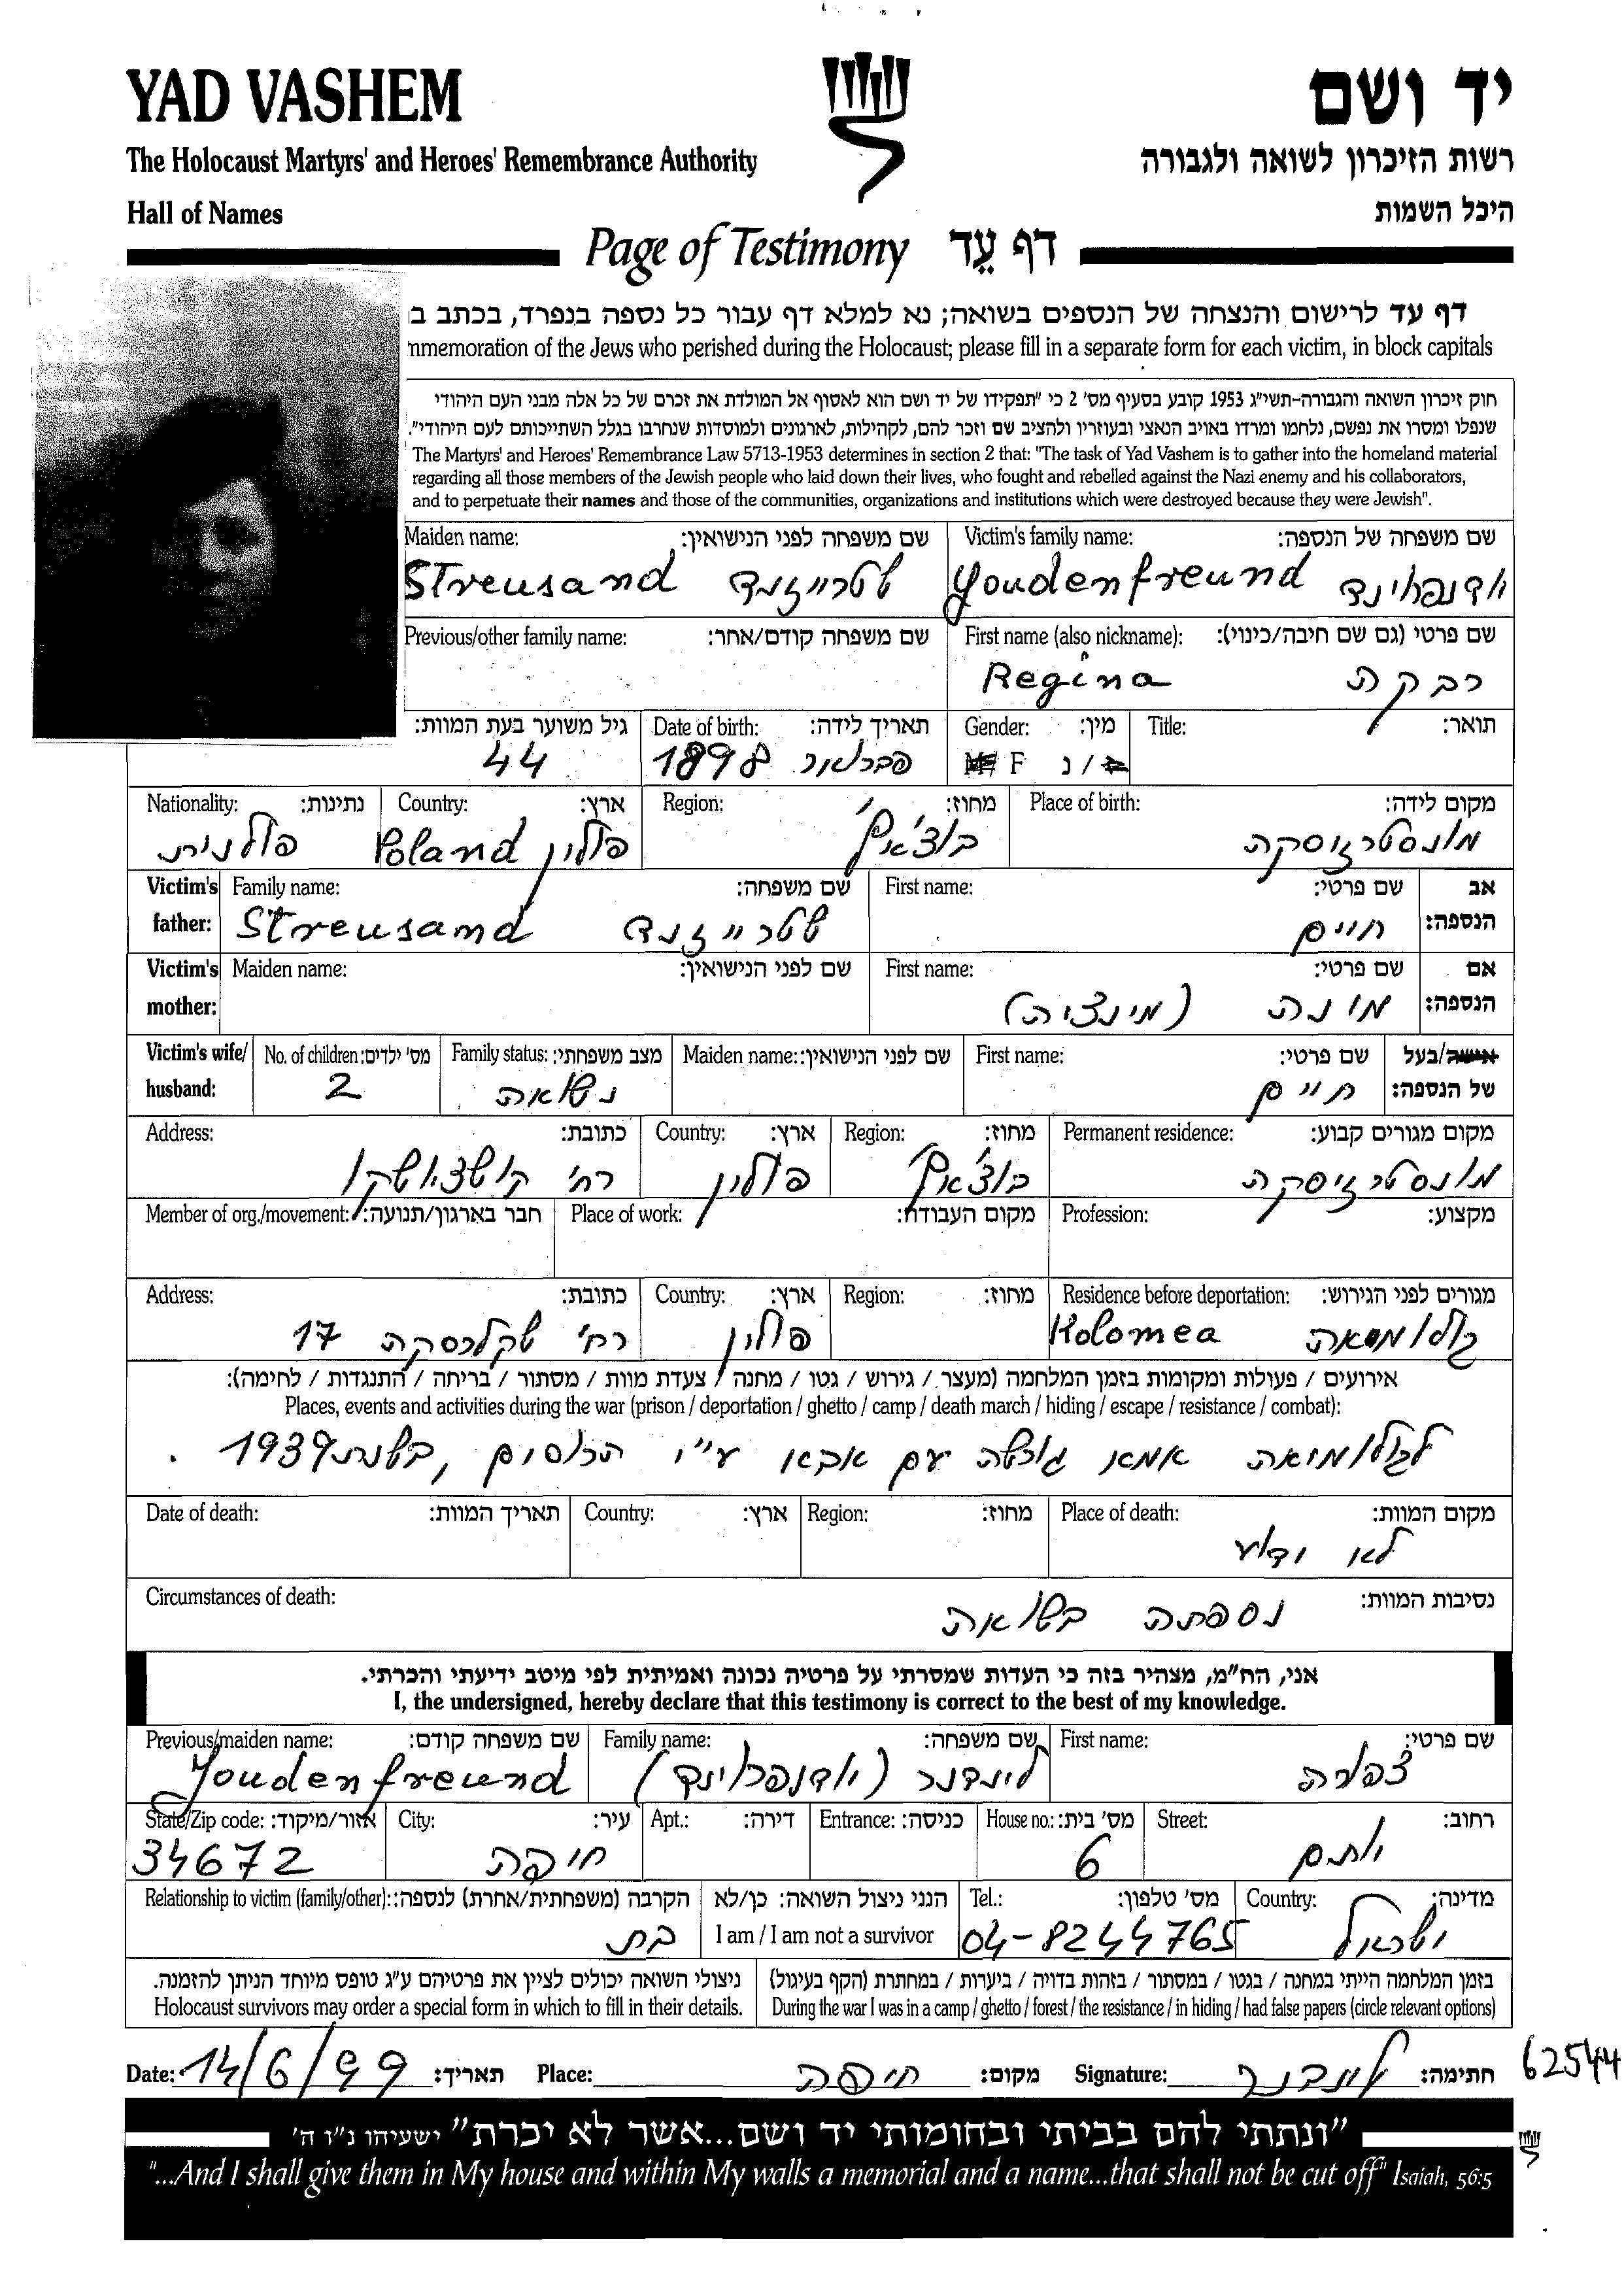 YAD VASHEM יד ושם
The Holocaust Martyrs' and Heroes' Remembrance Authority רשות הזיכרון לשואה ולגבורה
Hall of Names היכל השמות
Page of Testimony דף עד
דף עד לרישום והנצחה של הנספים בשואה; נא למלא דף עבור כל נספה בנפרד, בכתב ב
nmemoration of the Jews who perished during the Holocaust; please fill in a separate form for each victim, in block capitals
חוק זיכרון השואה והגבורה-תשי״ג 1953 קובע בסעיף מס׳ 2 כי ״תפקידו של יד ושם הוא לאסוף אל המולדת את זכרם של כל אלה מבני העם היהודי
שנפלו ומסרו את נפשם, נלחמו ומרדו באויב הנאצי ובעוזריו ולהציב שם וזכר להם, לקהילות, לארגונים ולמוסדות שנחרבו בגלל השתייכותם לעם היהודי״.
The Martyrs' and Heroes' Remembrance Law 5713-1953 determines in section 2 that: "The task of Yad Vashem is to gather into the homeland material
regarding all those members of the Jewish people who laid down their lives, who fought and rebelled against the Nazi enemy and his collaborators,
and to perpetuate their names and those of the communities, organizations and institutions which were destroyed because they were Jewish".
Maiden name: שם משפחה לפני הנישואין: Victim's family name: שם משפחה של הנספה:
Streusand שטרייזנד Youdenfreund יודנפרוינד
Previous/other family name: שם משפחה קודם/אחר: First name (also nickname): שם פרטי (גם שם חיבה/כינוי):
Regina רבקה
גיל משוער בעת המוות: Date of birth: תאריך לידה: Gender: מין: Title: תואר:
44 1898 פברואר F נ /
Nationality: נתינות: Country: ארץ: Region: מחוז: Place of birth: מקום לידה:
פולנית Poland פולין בוצ'אץ' מונסטרז'יסקה
Victim's father: Family name: שם משפחה: First name: שם פרטי: אב הנספה:
Streusand שטרייזנד חיים
Victim's mother: Maiden name: שם לפני הנישואין: First name: שם פרטי: אם הנספה:
מונה (מינציה)
Victim's wife/ husband: No. of children: מס׳ ילדים: Family status: מצב משפחתי: Maiden name: שם לפני הנישואין: First name: שם פרטי: אישה/בעל של הנספה:
2 נשואה חיים
Address: כתובת: Country: ארץ: Region: מחוז: Permanent residence: מקום מגורים קבוע:
רח' קושצ'ושקו פולין בוצ'אץ' מונסטרז'יסקה
Member of org./movement: חבר בארגון/תנועה: Place of work: מקום העבודה: Profession: מקצוע:
Address: כתובת: Country: ארץ: Region: מחוז: Residence before deportation: מגורים לפני הגירוש:
רח' 17 פולין Kolomea קולומיאה
אירועים / פעולות ומקומות בזמן המלחמה (מעצר / גירוש / גטו / מחנה / צעדת מוות / מסתור / בריחה / התנגדות / לחימה):
Places, events and activities during the war (prison / deportation / ghetto / camp / death march / hiding / escape / resistance / combat):
לקולומיאה אמא גורשה עם אבא ע"י הרוסים, בשנת 1939.
Date of death: תאריך המוות: Country: ארץ: Region: מחוז: Place of death: מקום המוות:
לא ידוע
Circumstances of death: נסיבות המוות:
נספתה בשואה
אני, הח״מ, מצהיר בזה כי העדות שמסרתי על פרטיה נכונה ואמיתית לפי מיטב ידיעתי והכרתי.
I, the undersigned, hereby declare that this testimony is correct to the best of my knowledge.
Previous/maiden name: שם משפחה קודם: Family name: שם משפחה: First name: שם פרטי:
Youdenfreund לינדנר (יודנפרוינד) צפורה
State/Zip code: אזור/מיקוד: City: עיר: Apt.: דירה: Entrance: כניסה: House no.: מס׳ בית: Street: רחוב:
34672 חיפה 6 יותם
Relationship to victim (family/other): הקרבה (משפחתית/אחרת) לנספה: הנני ניצול השואה: כן/לא Tel.: מס׳ טלפון: Country: מדינה:
בת I am / I am not a survivor 04-8244765 ישראל
ניצולי השואה יכולים לציין את פרטיהם ע״ג טופס מיוחד הניתן להזמנה. בזמן המלחמה הייתי במחנה / בגטו / במסתור / בזהות בדויה / ביערות / במחתרת (הקף בעיגול)
Holocaust survivors may order a special form in which to fill in their details. During the war I was in a camp / ghetto / forest / the resistance / in hiding / had false papers (circle relevant options)
Date: 14/6/99 תאריך: Place: חיפה מקום: Signature: לינדנר חתימה: 62544
״ונתתי להם בביתי ובחומותי יד ושם...אשר לא יכרת״ ישעיהו נ״ו ה׳
"...And I shall give them in My house and within My walls a memorial and a name...that shall not be cut off" Isaiah, 56:5